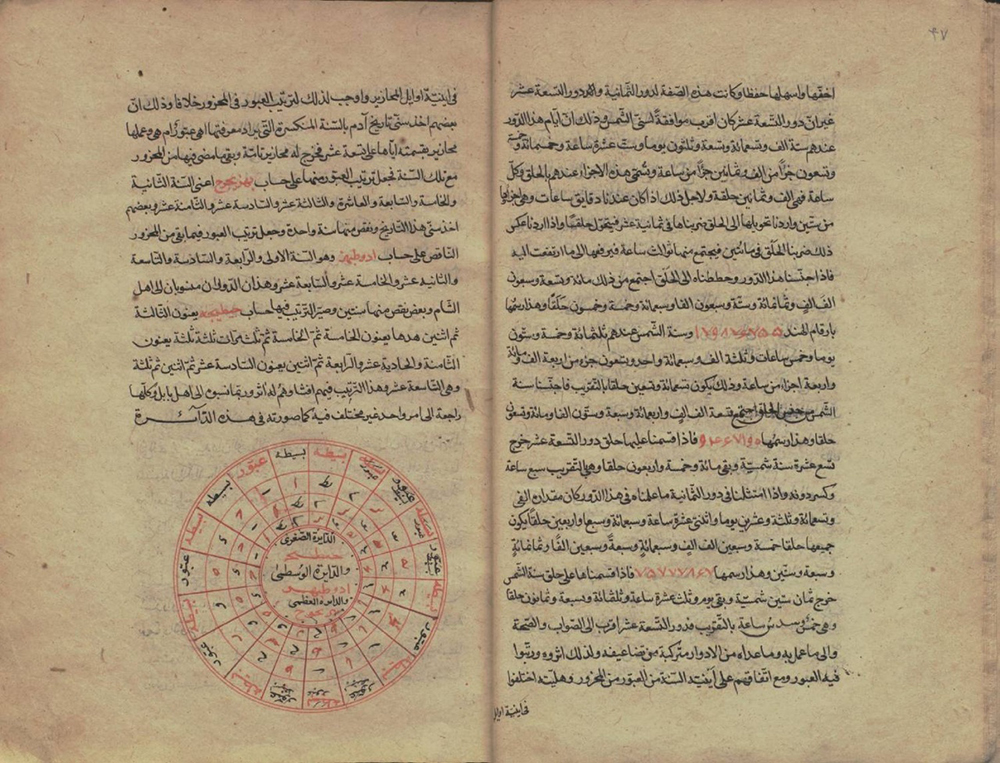 ٤٧
اخفّها واسهلها حفظا وكانت هذه الصفة لدور الثمانية والدور التسعة عشر
غير انّ دور التسعة عشر كان اقرب موافقة لسنى الشمس وذلك انّ ايام هذا الدور
عندهم ستة الف وتسعمائة وتسعة وثلثون يوما وست عشرة ساعة وخمسمائة وخمسة
وتسعون جزءًا من الف وثمانين جزءًا من ساعة وتسمّى هذه الاجزاء عندهم بالحلق وكلّ
ساعة فهى الف وثمانين حلقة ولاجل ذلك اذا كان عندنا دقايق ساعات وهى اجزاؤها
من ستّين واردنا تحويلها الى الحلق ضربناها فى ثمانية عشر فيتحوّل حلقا واذا اردنا عكس
ذلك ضربنا الحلق فى مائتين فيجتمع منها ثوالث ساعة فيرفعها الى ما ارتفعت اليه
فاذا جنّسنا هذا الدور وحططناه الى الحلق اجتمع من ذلك مائة وتسعة وسبعون
الف الف وثمانمائة وستّة وسبعون الفا وسبعمائة وخمسة وخمسون حلقا وهذا رسمها
بارقام الهند ١٧٩٨٧٦٧٥٥ وسنة الشمس عندهم ثلثمائة وخمسة وستّون
يوما وخمس ساعات وثلثة الف وسبعمائة واحد وتسعون جزء من اربعة الف ومائة
واربعة اجزاء من ساعة وذلك يكون تسعمائة وتسعين حلقا بالتقريب فاذا جنّسنا سنة
الشمس من جنس الحلق اجتمع تسعة الف الف واربعمائة وسبعة وستّون الفا ومائة وتسعون
حلقا وهذا رسمها ٩٤٦٧١٩٠ فاذا قسمنا عليها حلق دور التسعة عشر خرج
تسع عشرة سنة شمسيّة وبقى مائة وخمسة واربعون حلقا وهى بالتقريب سبع ساعة
وكسر دونه واذا امتثلنا فى دور الثمانية ما علمناه فى هذا الدور كان مقداره الفى
وتسعمائة وثلثة وعشرين يوما واثنتى عشرة ساعة وسبعمائة وسبعا واربعين حلقا يكون
جميعها حلقا خمسة وسبعين الف الف وسبعمائة وسبعة وسبعين الفًا وثمانمائة
وسبعة وستّين وهذا رسمها ٧٥٧٧٧٨٦٧ فاذا قسمناها على حلق سنة الشمس
خرج ثمان سنين شمسيّة وبقى يوم وثلث عشرة ساعة وثلثمائة وسبعة وثمانون حلقا
وهى خمس وسدس ساعة بالتقريب فدور التسعة عشر اقرب الى الصواب والصحة
والى ما عمل به وما عداه من الادوار متركّبة من تضاعيفه ولذلك اثروه ورتّبوا
فيه العبور ومع اتّفاقهم على أينيّة السنة من العبور من المحزور وهليته اختلفوا
فى اينية اوايل
فى اينيّة اوايل المحازير واوجب لذلك لترتيب العبور فى المحزور خلافا وذلك انّ
بعضهم اخذ سنى تاريخ آدم بالسنة المنكسرة التى يراد معرفتها اهى عبّور ام هى وعملها
محازير بقسمته ايّاها على تسعة عشر فخرج له محازير تامّة وبقى ما مضى فيها من المحزور
مع تلك السنة فجعل ترتيب العبور منها على حساب بهزيجوح اعنى السنة الثانية
والخامسة والسابعة والعاشرة والثالثة عشر والسادسة عشر والثامنة عشر وبعضهم
اخذ سنى هذا التاريخ ونقص منها سنة واحدة وجعل ترتيب العبور فيما بقى من المحزور
الناقص على حساب ادوطبهز وهو السنة الاولى والرابعة والسادسة والتاسعة
والثانية عشر والخامسة عشر والسابعة عشر وهذان الدوران منسوبان الى اهل
الشام وبعض نقص منها سنتين وصيّر الترتيب فيها حساب جبطبج يعنون الثالثة
ثم اثنين بعدها يعنون الخامسة ثمّ الخامسة ثمّ ثلث مرّات ثلثة ثلثة يعنون
الثامنة والحادية عشر والرابعة ثمّ اثنين يعنون السادسة عشر ثمّ اثنين ثمّ ثلثة
وهى التاسعة عشر وهذا الترتيب فيهم افشا وهم له آثر وربّما نسبوه الى اهل بابل وكلّها
راجعة الى امر واحد غير مختلف فيه كما صورته فى هذه الدّآئرة
بسيطه
عبور
الدايرة الصغرى
والدايرة الوسطى
ادوطبهز
والدايرة العظمى